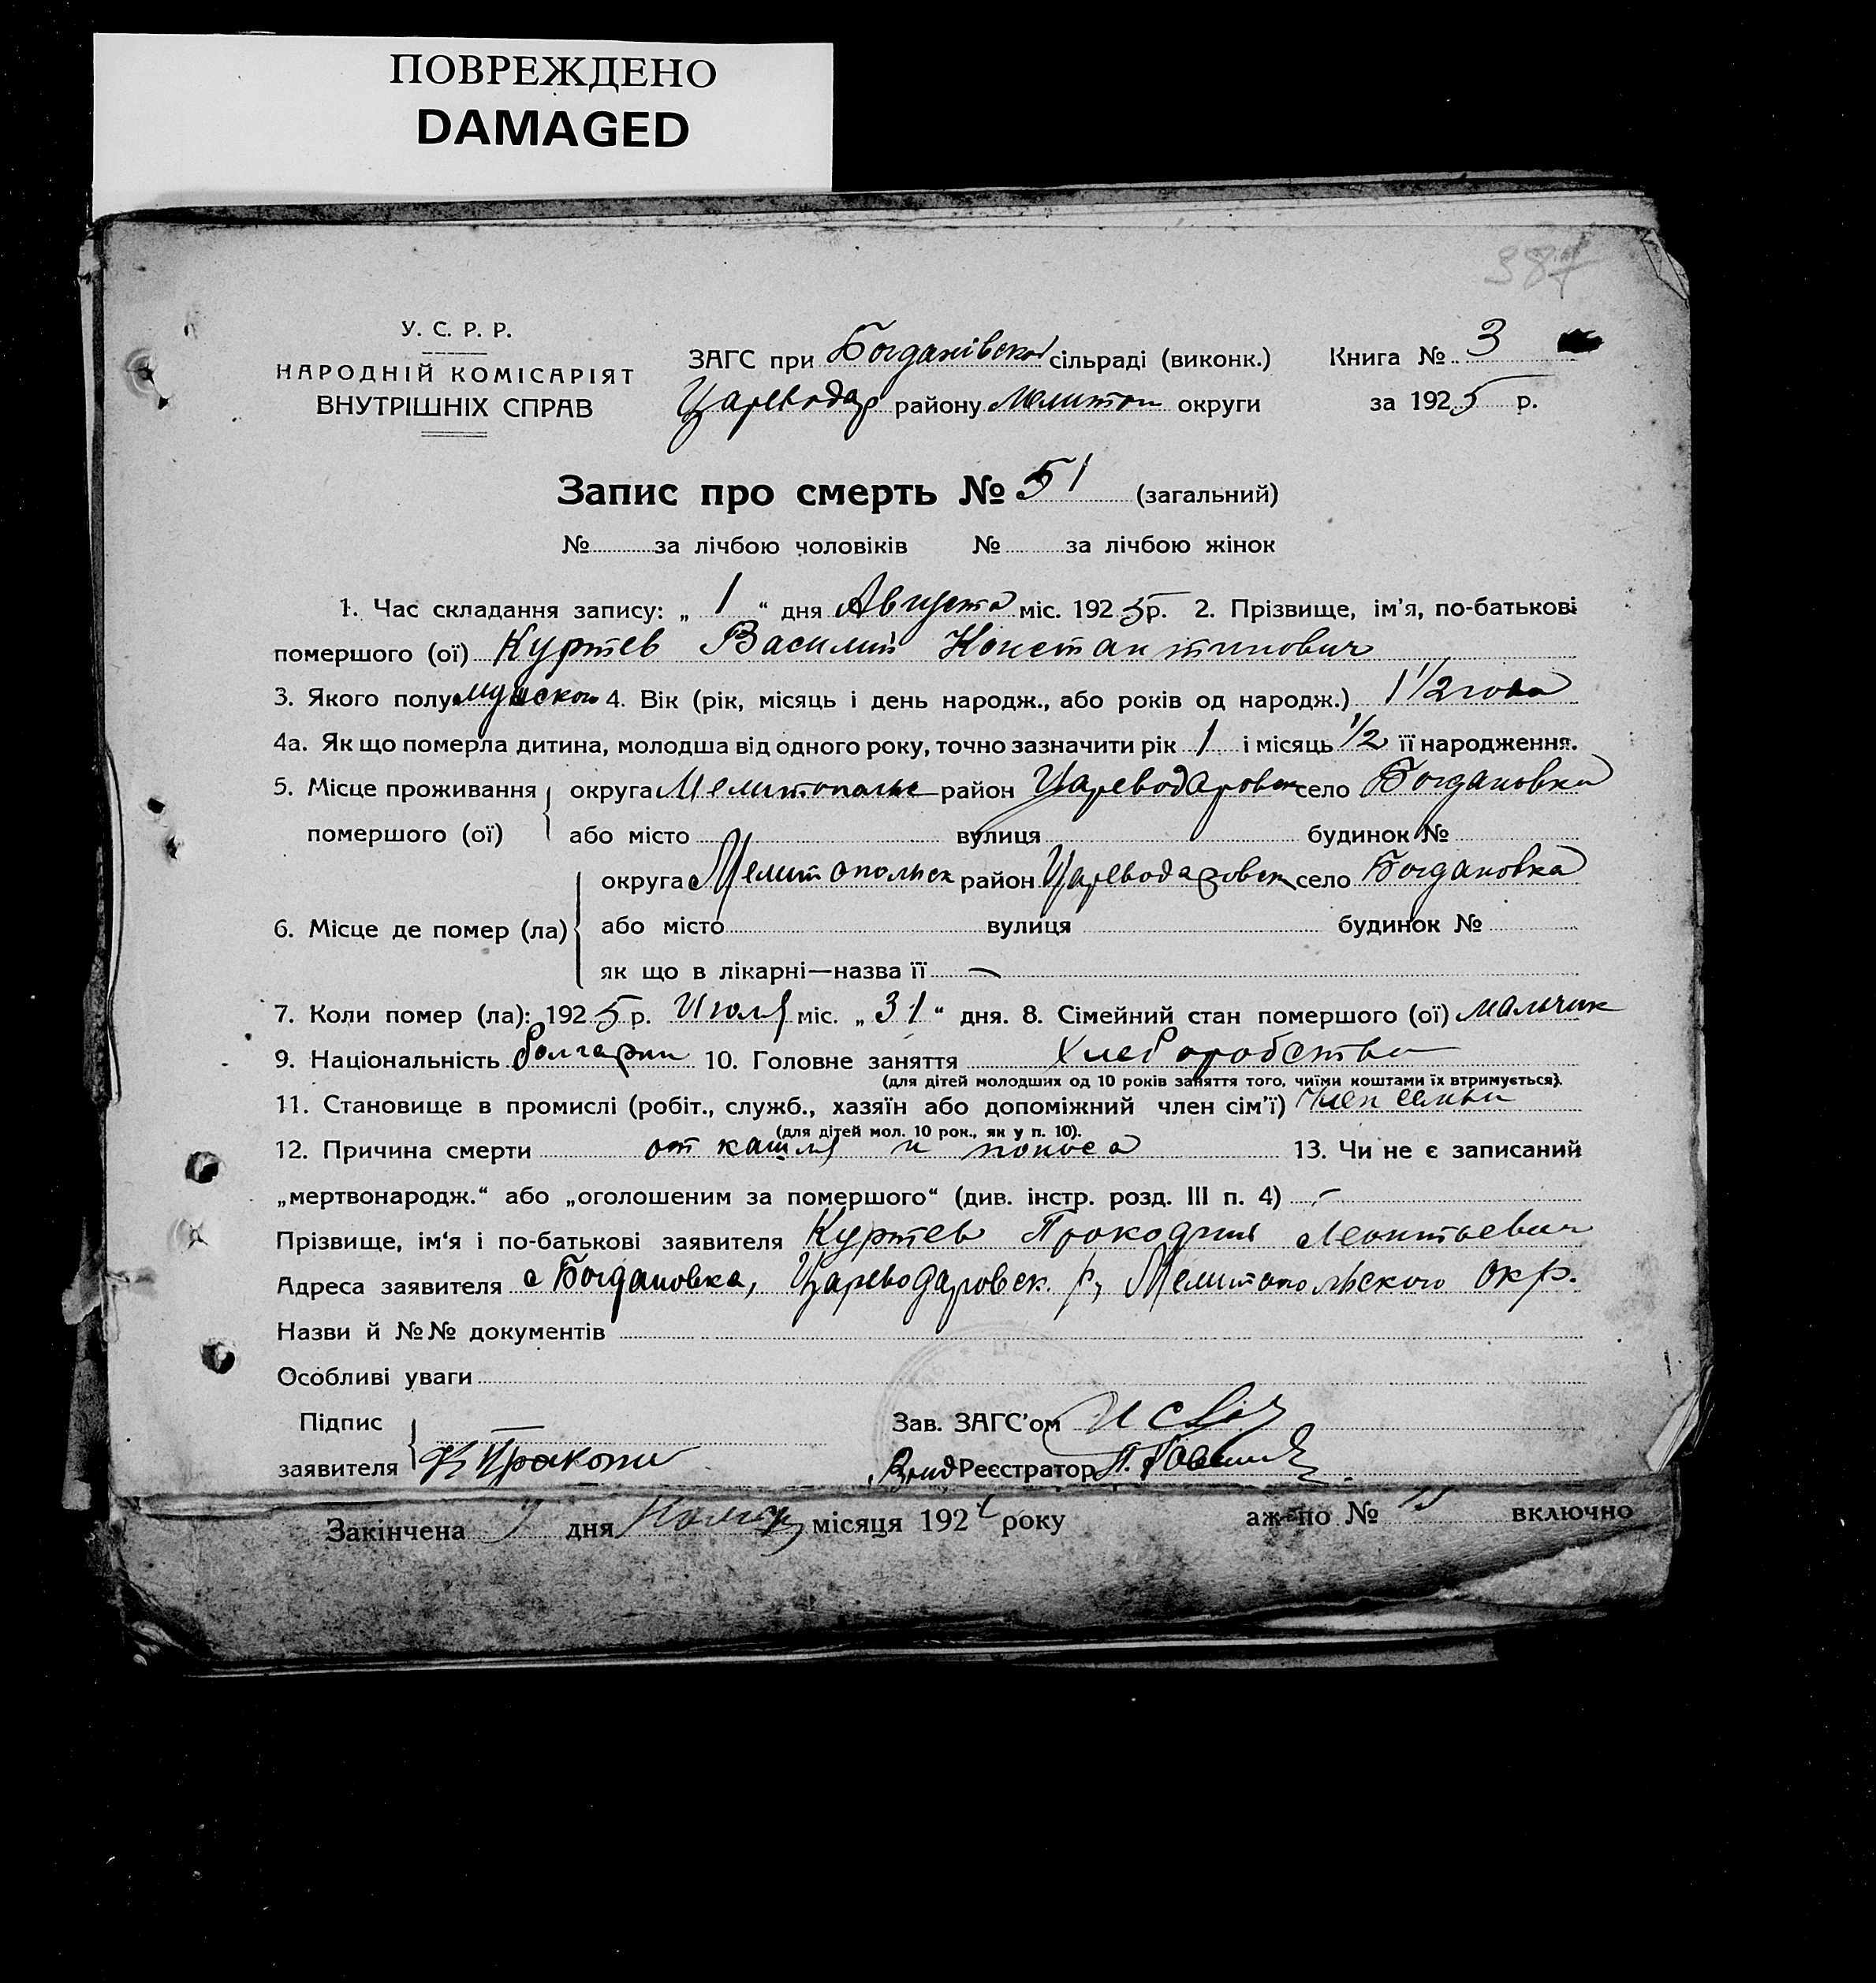 ПОВРЕЖДЕНО
DAMAGED
387
У. С. Р. Р.
НАРОДНІЙ КОМІСАРІЯТ
ВНУТРІШНІХ СПРАВ
ЗАГС при Богданівской сільраді (виконк.)
Цареводар району Мелитоп округи
Книга № 3
за 1925 р.
Запис про смерть № 51 (загальний)
№ за лічбою чоловіків № за лічбою жінок
1. Час складання запису: „ 1 “ дня Августа міс. 1925 р. 2. Прізвище, ім'я, по-батькові
помершого (ої) Куртев Василий Константинович
3. Якого полу мужского 4. Вік (рік, місяць і день народж., або років од народж.) 1 1/2 года
4а. Як що померла дитина, молодша від одного року, точно зазначити рік 1 і місяць 1/2 її народження.
5. Місце проживання округа Мелитопольс район Цареводаровск село Богдановка
помершого (ої) або місто вулиця будинок №
округа Мелитопольск район Цареводаровск село Богдановка
6. Місце де помер (ла) або місто вулиця будинок №
як що в лікарні—назва її —
7. Коли помер (ла): 1925 р. Июля міс. „ 31 “ дня. 8. Сімейний стан помершого (ої) мальчик
9. Національність болгарин 10. Головне заняття Хлеборобство
(для дітей молодших од 10 років заняття того, чиїми коштами їх втримується).
11. Становище в промислі (робіт., служб., хазяїн або допоміжний член сім'ї) Член семьи
(для дітей мол. 10 рок., як у п. 10).
12. Причина смерти от кашля и поноса 13. Чи не є записаний
„мертвонародж.“ або „оголошеним за помершого“ (див. інстр. розд. III п. 4) —
Прізвище, ім'я і по-батькові заявителя Куртев Леонтьевич
Адреса заявителя с Богдановка, Цареводаровск. р, Мелитопольского окр.
Назви й №№ документів
Особливі уваги
Підпис Зав. ЗАГС'ом
заявителя К Прокопи Врид Реєстратор
Закінчена дня місяця 192 року аж по № включно